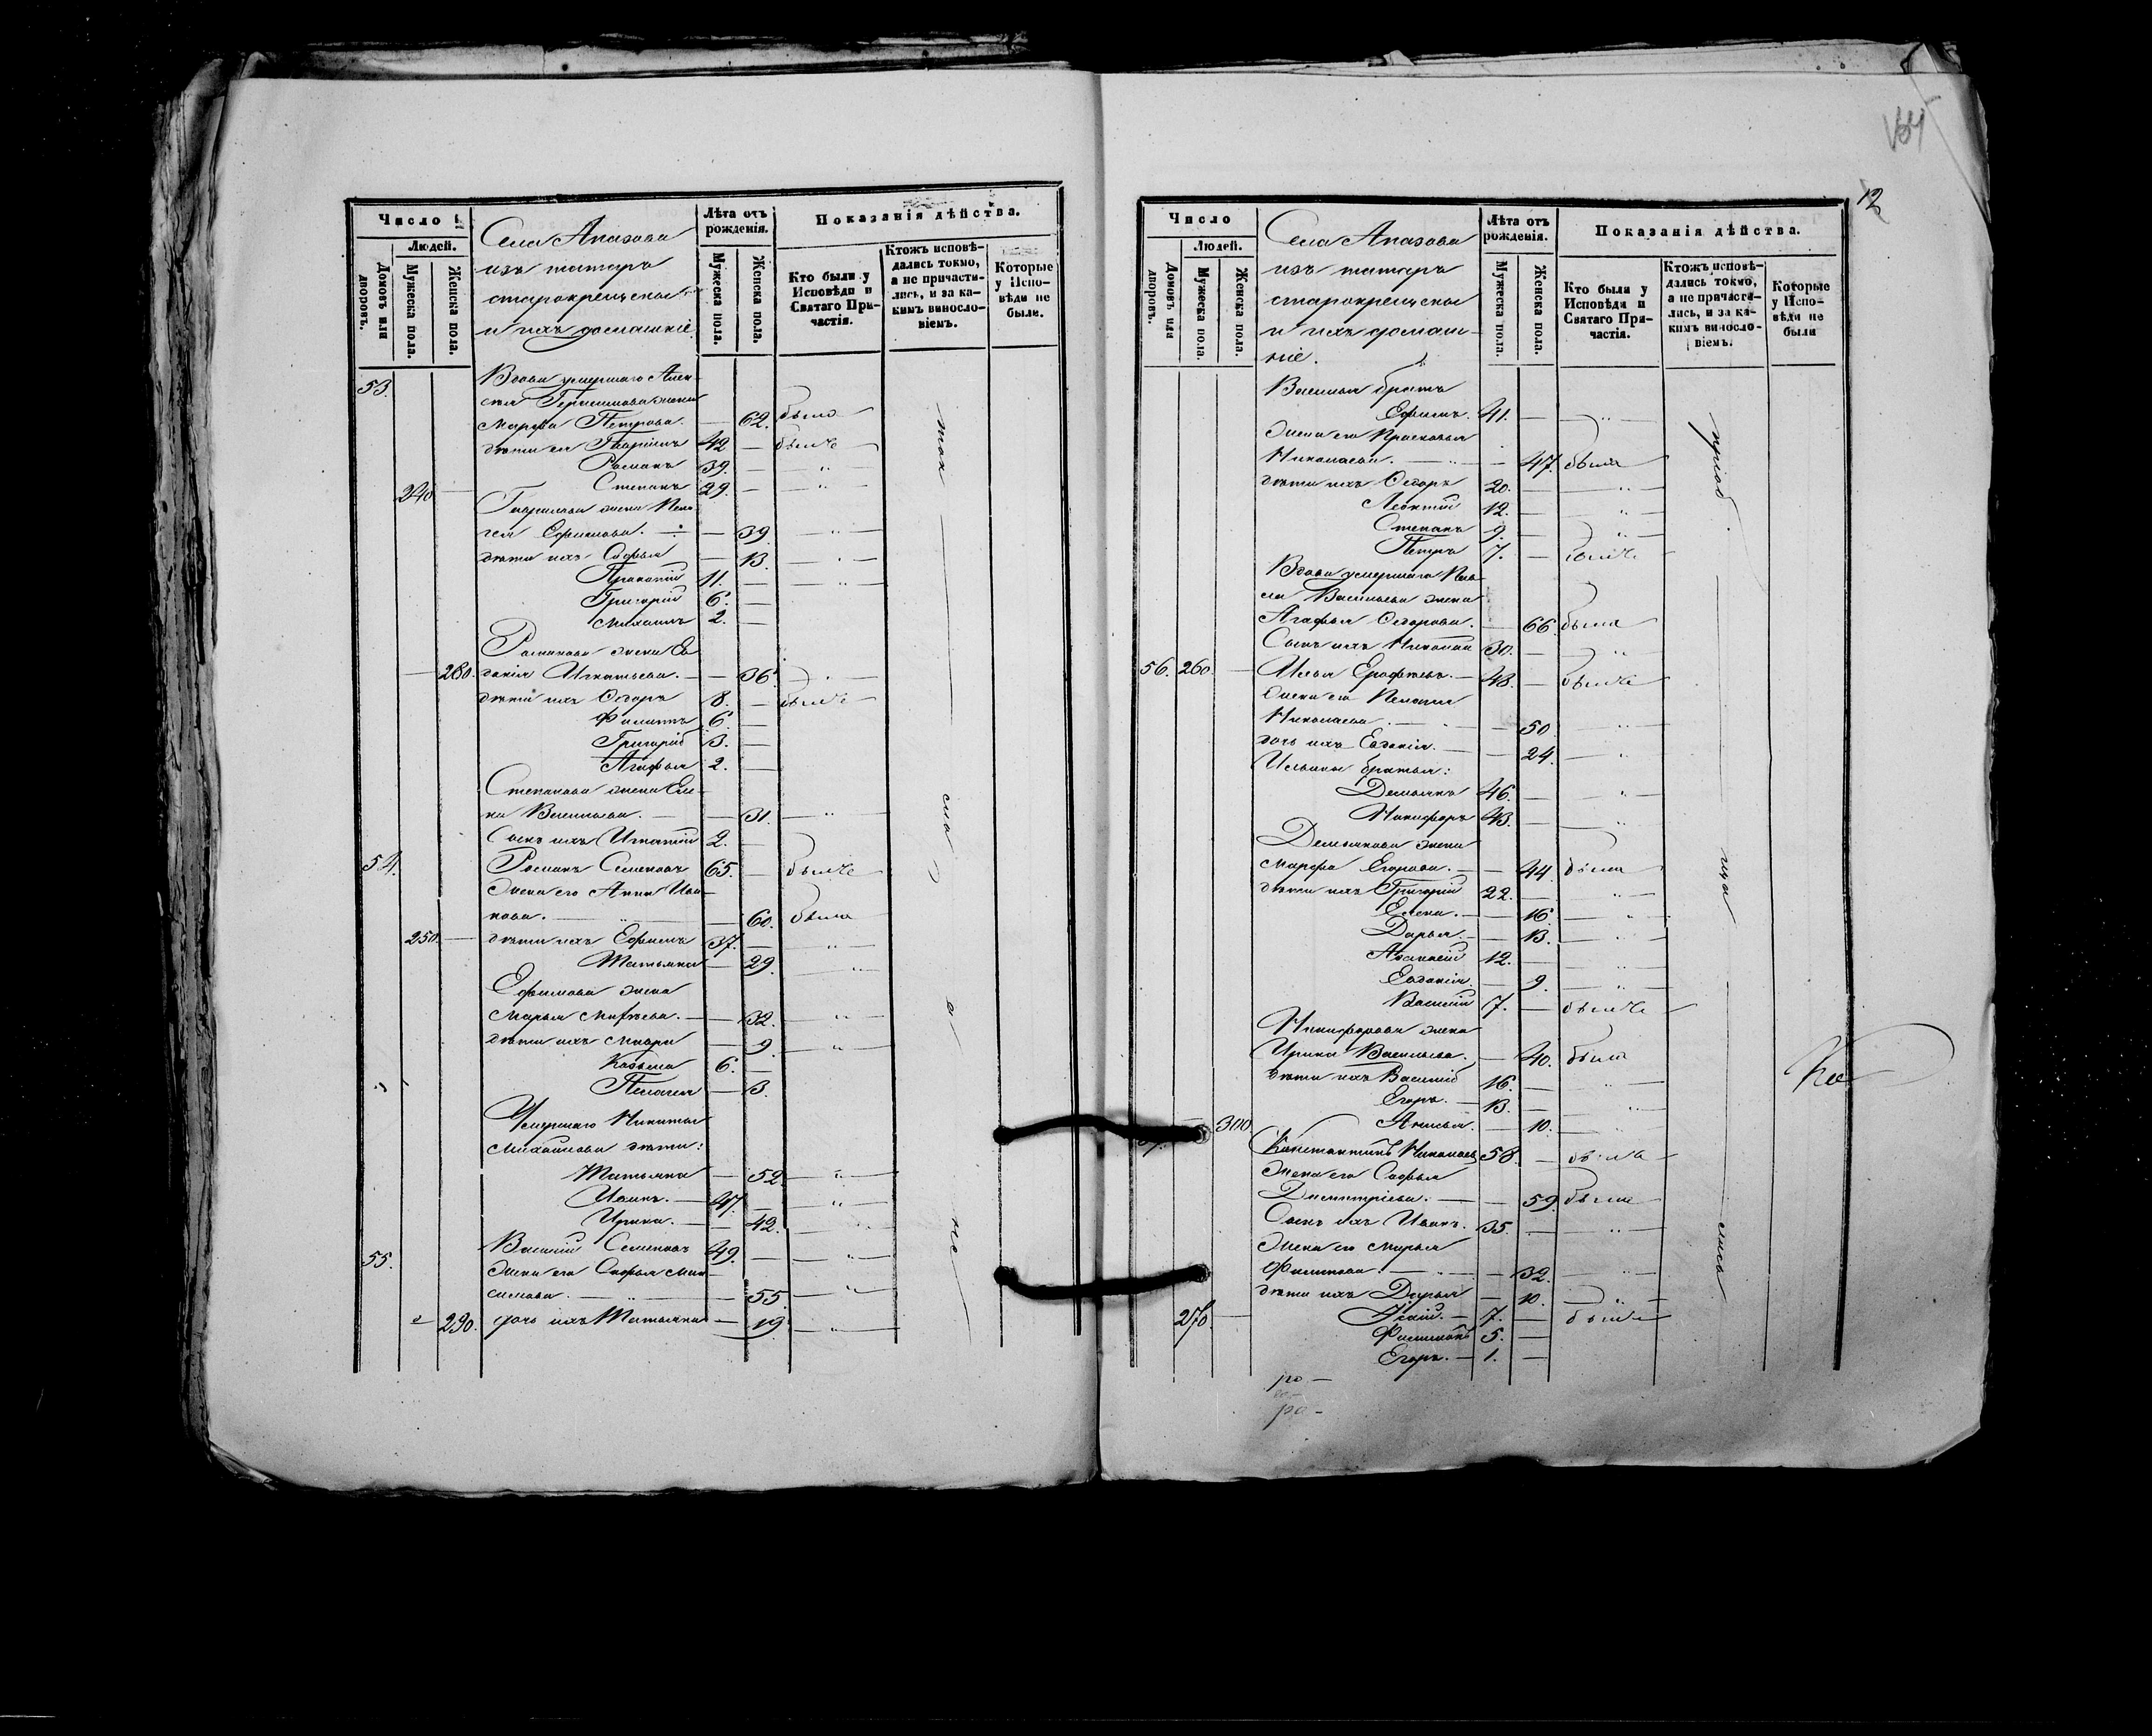 Число
Людей.
Домовъ или дворовъ.
Мужеска пола.
Женска пола.
Села Апазова
изъ татаръ
старокрещены
и ихъ домашніе.
Лѣта отъ рожденія.
Мужеска пола.
Женска пола.
Показанія дѣйства.
Кто были у Исповѣди и Святаго Причастія.
Ктожъ исповѣдались токмо, а не причастились, и за какимъ винословіемъ.
Которые у Исповѣди не были.
53. Вдова умершаго Алек-
сѣя Герасимова жена
Марѳа Петрова. — 62. была
дѣти ея Гаврiилъ 42 — былъ
Романъ 39. — "
240 — Степанъ 29. — "
Гаврилова жена Пела-
гея Ефимова. — 39. "
дѣти ихъ Софья — 13. "
Прокопій 11. — "
Григорій 6. —
Михаилъ 2. —
Романова жена Ев-
280. докія Игнатьева. — 36. "
дѣти ихъ Ѳедоръ 8. — былъ
Филиппъ 6. —
Григорій 3. —
Агафья 2. —
Степанова жена Еле-
на Васильева. — 31. "
Сынъ ихъ Игнатій 2. —
54. Романъ Семеновъ 65. — былъ
Жена его Анна Ива-
нова. — 60. была
250. — дѣти ихъ Ефимъ 37. — "
Татьяна — 29. "
Ефимова жена
Марья — 32. "
дѣти ихъ Мавра — 9. "
Козьма 6. —
Пелагея — 3.
Умершаго Никиты
Михайлова дѣти:
Татьяна — 52. "
Иванъ. — 47. — "
Ирина. — 42. "
55. Василій Семеновъ 49. — "
Жена его Софья Мак-
симова. — 55. "
290. дочь ихъ Татьяна — 19. "
12
Число
Людей.
Домовъ или дворовъ.
Мужеска пола.
Женска пола.
Села Апазова
изъ татаръ
старокрещены
и ихъ домаш-
ніе.
Лѣта отъ рожденія.
Мужеска пола.
Женска пола.
Показанія дѣйства.
Кто были у Исповѣди и Святаго Причастія.
Ктожъ исповѣдались токмо, а не причастились, и за какимъ винословіемъ.
Которые у Исповѣди не были
Василья братъ
Ефимъ. 41. — "
Жена его Прасковья
Николаева. — 47. была
дѣти ихъ Ѳедоръ 20. — "
Леонтій 12. — "
Степанъ 9. — "
Петръ 7. — былъ
Вдова умершаго
Васильева жена
Агафья Ѳедорова. — 66. была
Сынъ ихъ Николай 30. — "
56. 260. — Илья Ерофѣевъ. — 48. — былъ
Жена его Пелагея
Николаева. — 50. "
дочь ихъ Евдокія. — 24. "
Ильины братья:
Демьянъ 46. — "
Никифоръ 43. — "
Демьянова жена
Марѳа Егорова. — 44. была
дѣти ихъ Григорій 22. — "
Елена. — 16. "
Дарья. — 13. "
Аѳанасій 12. — "
Евдокія. — 9. "
Василій 7. — былъ
Никифорова жена
Ирина Васильева. — 40. была
дѣти ихъ Василій 16. — "
Егоръ. — 13. — "
300. Анисья. — 10. "
57. Константинъ Николаевъ 58. — былъ
Жена его Софья
Димитріева. — 59. была
Сынъ ихъ Иванъ. 35. — "
Жена его Марья
Филипова. — 32. "
дѣти ихъ Дарья — 10. "
270. — 7. — былъ
5. —
Егоръ. — 1. —